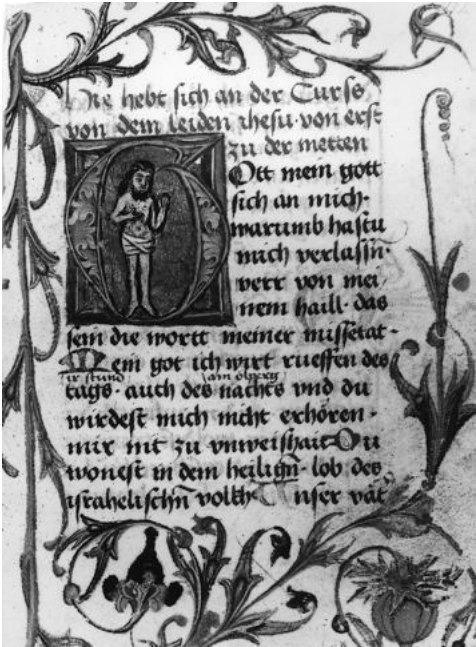 Hie hebt sich an der Curss
von dem leiden ihesu · von erst
zu der metten
Gott mein gott
sich an mich ·
warumb hastu
mich verlassn ·
verr von mei
nem haill · das
sein die wortt meiner missetat ·
Mein got ich wirt rueffen des
ir stund am ölperg
tags · auch des nachts vnd du
wirdest mich nicht erhören ·
mir nit zu vnweishait Du
wonest in dem heiligñ · lob des
israhelischñ volkh · Unser vat